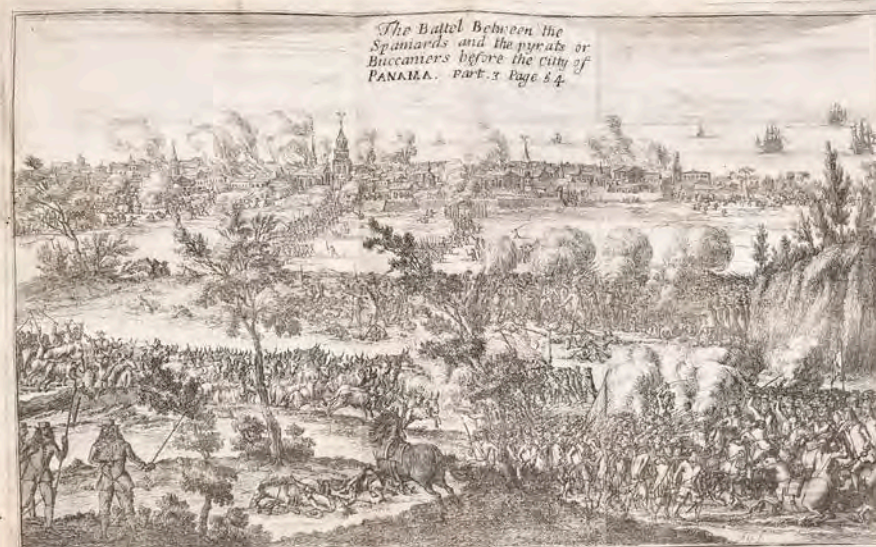 The Battel Between the
Spaniards and the pyrats or
Buccaniers before the citty of
PANAMA. Part. 3 Page 54